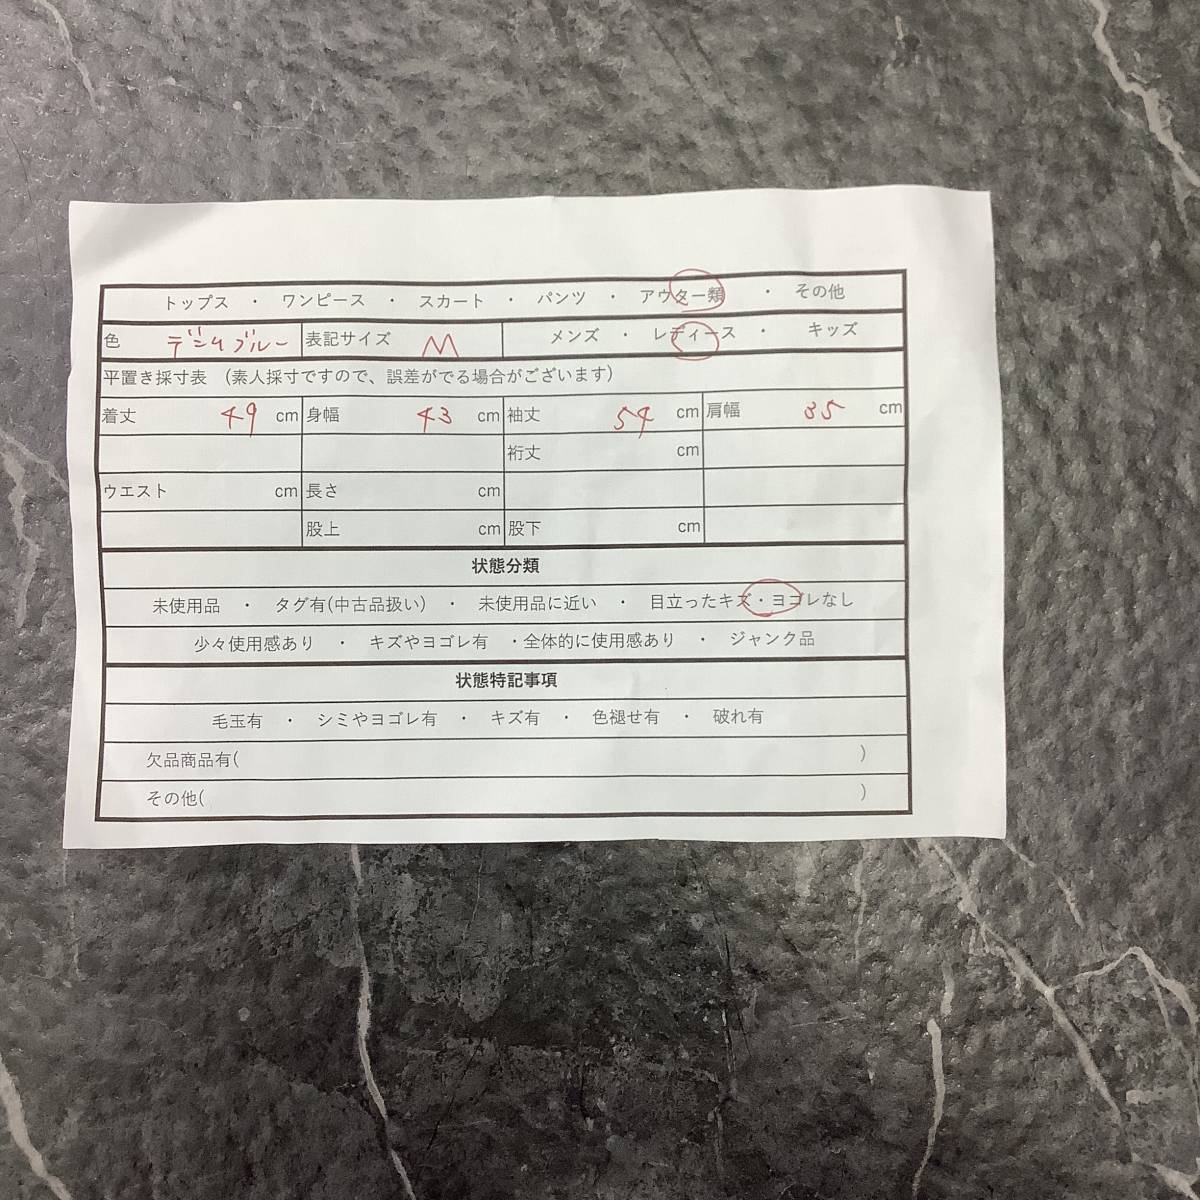 トップス ・ ワンピース ・ スカート ・ パンツ ・ アウター類 ・ その他
色 デニムブルー 表記サイズ M メンズ ・ レディース ・ キッズ
平置き採寸表 (素人採寸ですので、誤差がでる場合がございます)
着丈 49 cm 身幅 43 cm 袖丈 54 cm 肩幅 35 cm
裄丈 cm
ウエスト cm 長さ cm
股上 cm 股下 cm
状態分類
未使用品 ・ タグ有(中古品扱い) ・ 未使用品に近い ・ 目立ったキズ・ヨゴレなし
少々使用感あり ・ キズやヨゴレ有 ・全体的に使用感あり ・ ジャンク品
状態特記事項
毛玉有 ・ シミやヨゴレ有 ・ キズ有 ・ 色褪せ有 ・ 破れ有
欠品商品有( )
その他( )